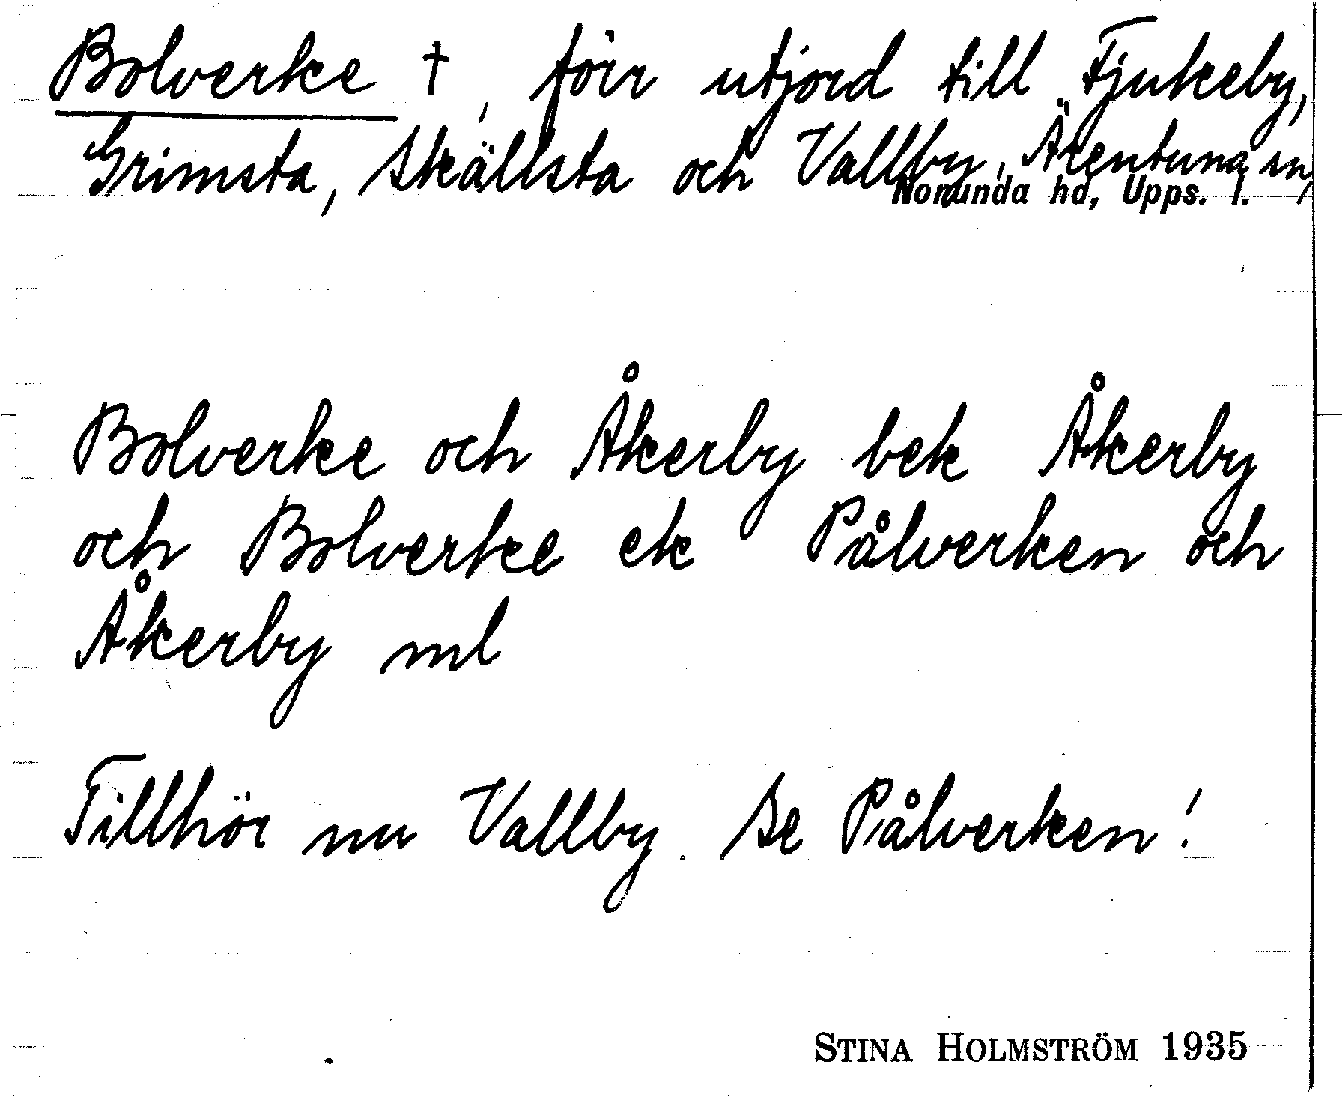 Bolverke †, förr utjord till Fjukeby,
Grimsta, Skällsta och Vallby, Ärentuna sn,
Norunda hd, Upps. l.
Bolverke och Åkerby bek Åkerby
och Bolverke ek Pålverken och
Åkerby ml
Tillhör nu Vallby. Se Pålverken!
STINA HOLMSTRÖM 1935